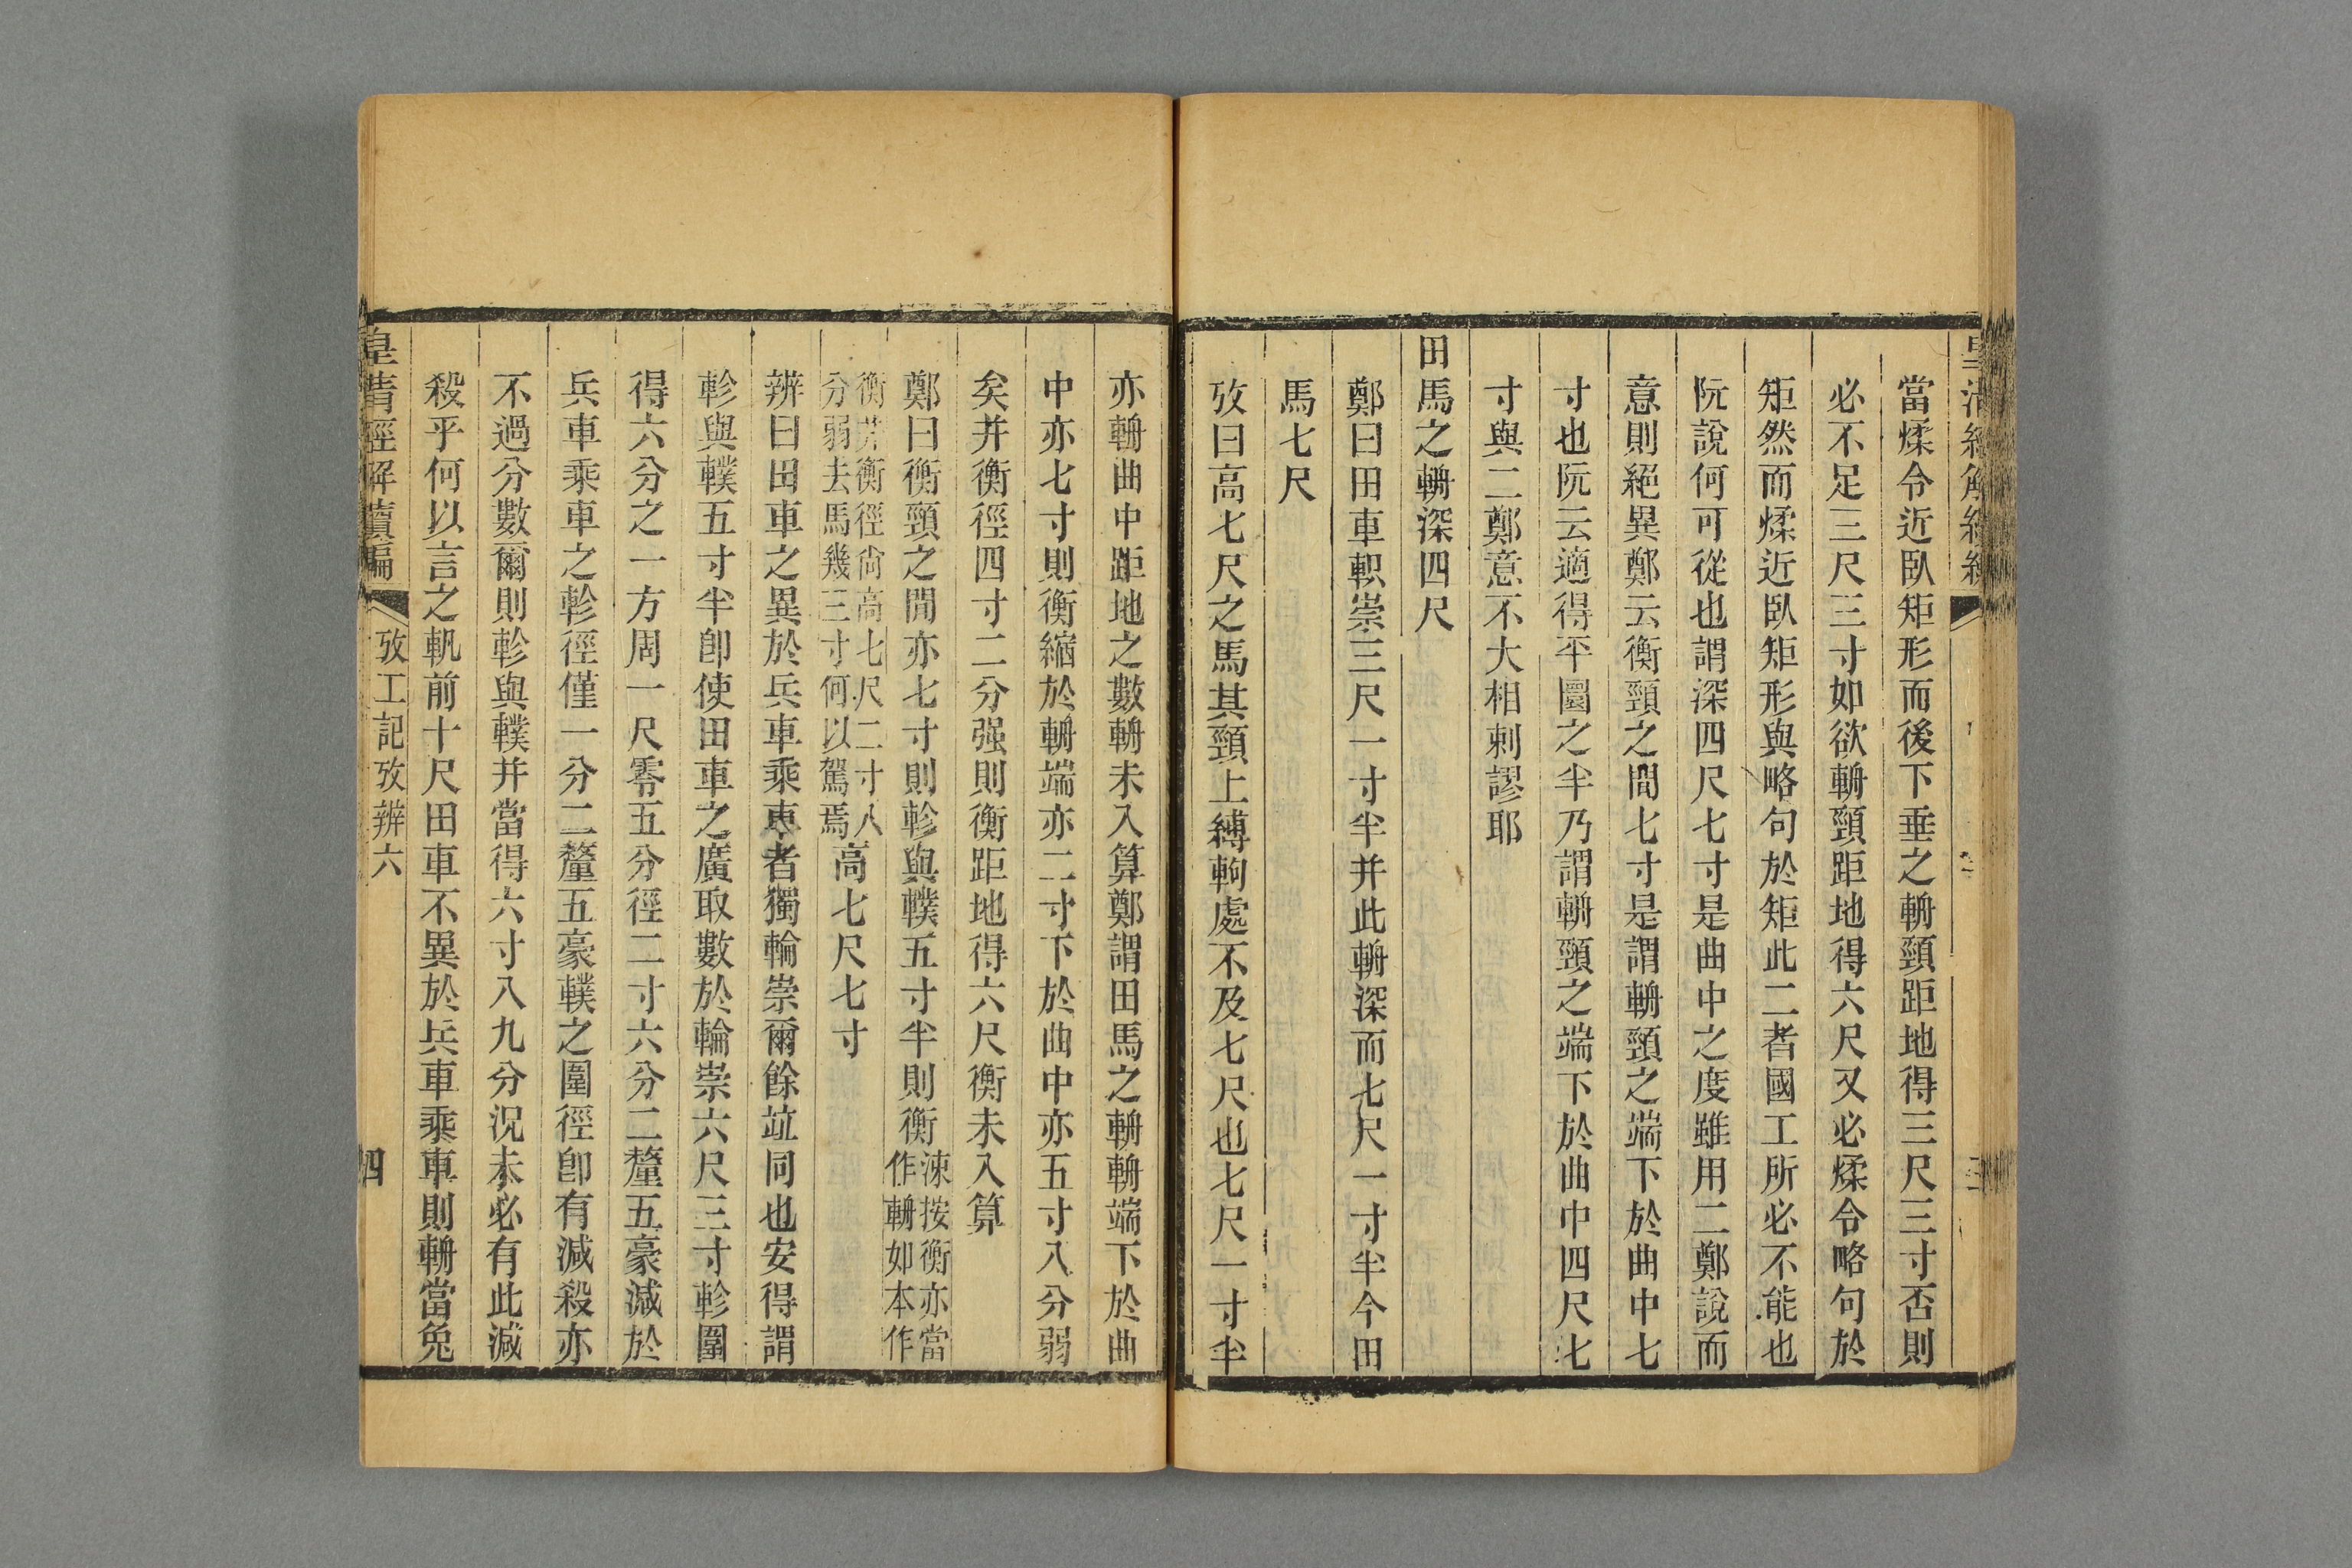 當煣令近臥矩形而後下垂之輈頸距地得三尺三寸否則
必不足三尺三寸如欲輈頸距地得六尺又必煣令略句於
矩然而煣近臥矩形與略句於矩此二者國工所必不能也
阮說何可從也謂深四尺七寸是曲中之度雖用二鄭說而
意則絕異鄭云衡頸之間七寸是謂輈頸之端下於曲中七
寸也阮云適得平圜之半乃謂輈頸之端下於曲中四尺七
寸與二鄭意不大相剌謬耶
田馬之輈深四尺
鄭曰田車軹崇三尺一寸半并此輈深而七尺一寸半今田
馬七尺
攷曰高七尺之馬其頸上縛軥處不及七尺也七尺一寸半
亦輈曲中距地之數輈未入算鄭謂田馬之輈輈端下於曲
中亦七寸則衡縮於輈端亦二寸下於曲中亦五寸八分弱
矣并衡徑四寸二分强則衡距地得六尺衡未入算
鄭曰衡頸之間亦七寸則軫與轐五寸半則衡涑按衡亦當作輈如本作
衡并衡徑尙高七尺二寸八分弱去馬幾三寸何以駕焉高七尺七寸
辨曰田車之異於兵車乘車者獨輪崇爾餘竝同也安得謂
軫與轐五寸半卽使田車之廣取數於輪崇六尺三寸軫圍
得六分之一方周一尺零五分徑二寸六分二釐五豪減於
兵車乘車之軫徑僅一分二釐五豪轐之圍徑卽有減殺亦
不過分數爾則軫與轐并當得六寸八九分況未必有此減
殺乎何以言之軓前十尺田車不異於兵車乘車則輈當免
皇清經解續編
攷工記攷辨六
四